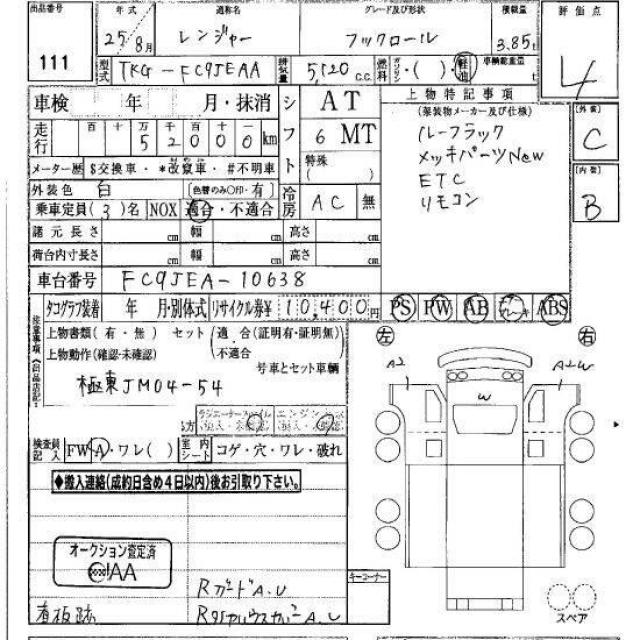 出品番号 111
年式 25/8月
通称名 レンジャー
グレード及び形状 フックロール
積載量 3.85t
評価点 4
型式 TKG-FC9JEAA
排気量 5,120 c.c.
燃料 ガソリン・( )・軽油
車輌総重量 t
外装 C
内装 B
車検 年 月・抹消
シフト AT
6 MT
特殊 ( )
走行 百 十 万 千 百 十
5 2 0 0 0 km
メーター歴 $交換車・*改竄車・#不明車
外装色 白 (色替のみ○印・有)
冷房 AC 無
乗車定員(3)名 NOX 適合・不適合
諸元長さ cm 幅 cm 高さ cm
荷台内寸長さ cm 幅 cm 高さ cm
車台番号 FC9JEA-10638
タコグラフ装着 年 月・別体式 リサイクル券¥ 10,400円
上物特記事項
(架装物メーカー及び仕様)
ルーフラック
メッキパーツNew
ETC
リモコン
PS PW AB ABS
注意事項(出品店記)
上物書類(有・無) セット(適合(証明有・証明無)・不適合)
上物動作(確認・未確認) 号車とセット車輌
極東JM04-54
検査員記入 FW A・ワレ( ) 室内シート コゲ・穴・ワレ・破れ
◆搬入連絡(成約日含め4日以内)後お引取り下さい。
オークション査定済
JAA
看板跡
RガードA.U
A.U
キーコーナー
左 右
A2 A2W
W
スペア